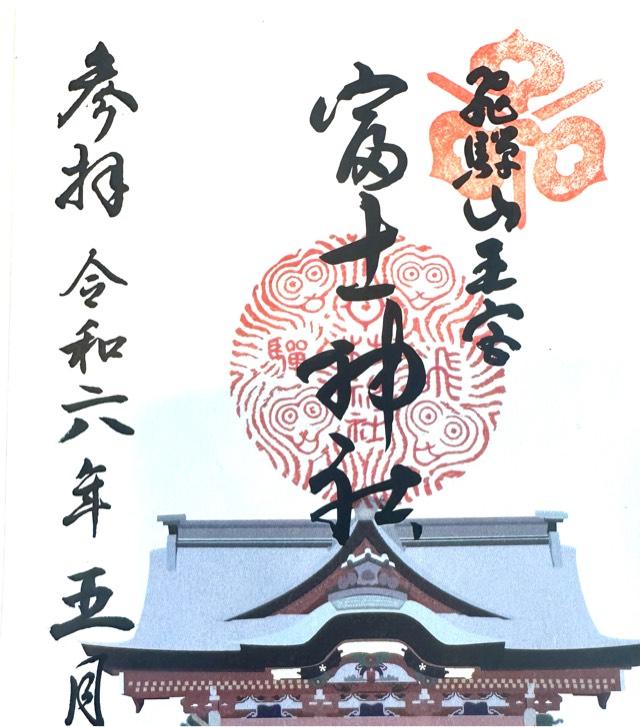 飛騨山王宮
富士神社
参拝 令和六年 五月
飛驒